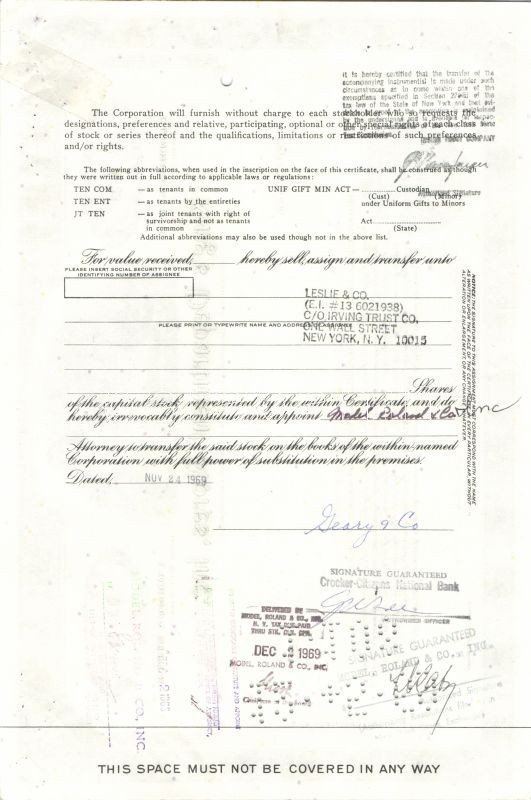 It is hereby certified that the transfer of the
accompanying instrument(s) is made under such
circumstances as to come within one of the
exemptions specified in Section 270(5) of the
tax law of the State of New York and that
The Corporation will furnish without charge to each stockholder who so requests the
designations, preferences and relative, participating, optional or other special rights of each class
of stock or series thereof and the qualifications, limitations or restrictions of such preferences
and/or rights.
TRUST COMPANY
Authorized Signature
The following abbreviations, when used in the inscription on the face of this certificate, shall be construed as though
they were written out in full according to applicable laws or regulations:
TEN COM — as tenants in common UNIF GIFT MIN ACT — Custodian
(Cust) (Minor)
TEN ENT — as tenants by the entireties under Uniform Gifts to Minors
JT TEN — as joint tenants with right of
survivorship and not as tenants
in common
Act
(State)
Additional abbreviations may also be used though not in the above list.
For value received, hereby sell, assign and transfer unto
PLEASE INSERT SOCIAL SECURITY OR OTHER
IDENTIFYING NUMBER OF ASSIGNEE
LESLIE & CO.
(E.I. #13 6021938)
C/O IRVING TRUST CO.
PLEASE PRINT OR TYPEWRITE NAME AND ADDRESS OF ASSIGNEE
ONE WALL STREET
NEW YORK, N. Y. 10015
Shares
of the capital stock represented by the within Certificate, and do
hereby irrevocably constitute and appoint Model Roland & Co Inc
Attorney to transfer the said stock on the books of the within-named
Corporation with full power of substitution in the premises.
Dated, NOV 24 1969
NOTICE: THE SIGNATURE TO THIS ASSIGNMENT MUST CORRESPOND WITH THE NAME
AS WRITTEN UPON THE FACE OF THE CERTIFICATE IN EVERY PARTICULAR WITHOUT
ALTERATION OR ENLARGEMENT OR ANY CHANGE WHATEVER
Geary & Co
SIGNATURE GUARANTEED
Crocker-Citizens National Bank
AUTHORIZED OFFICER
DELIVERED BY
MODEL, ROLAND & CO., INC.
N. Y. TAX PAID
THRU STK. CLR. CPN.
DEC 1969
MODEL, ROLAND & CO., INC.
SIGNATURE GUARANTEED
MODEL, ROLAND & CO., INC.
CO. INC
THIS SPACE MUST NOT BE COVERED IN ANY WAY